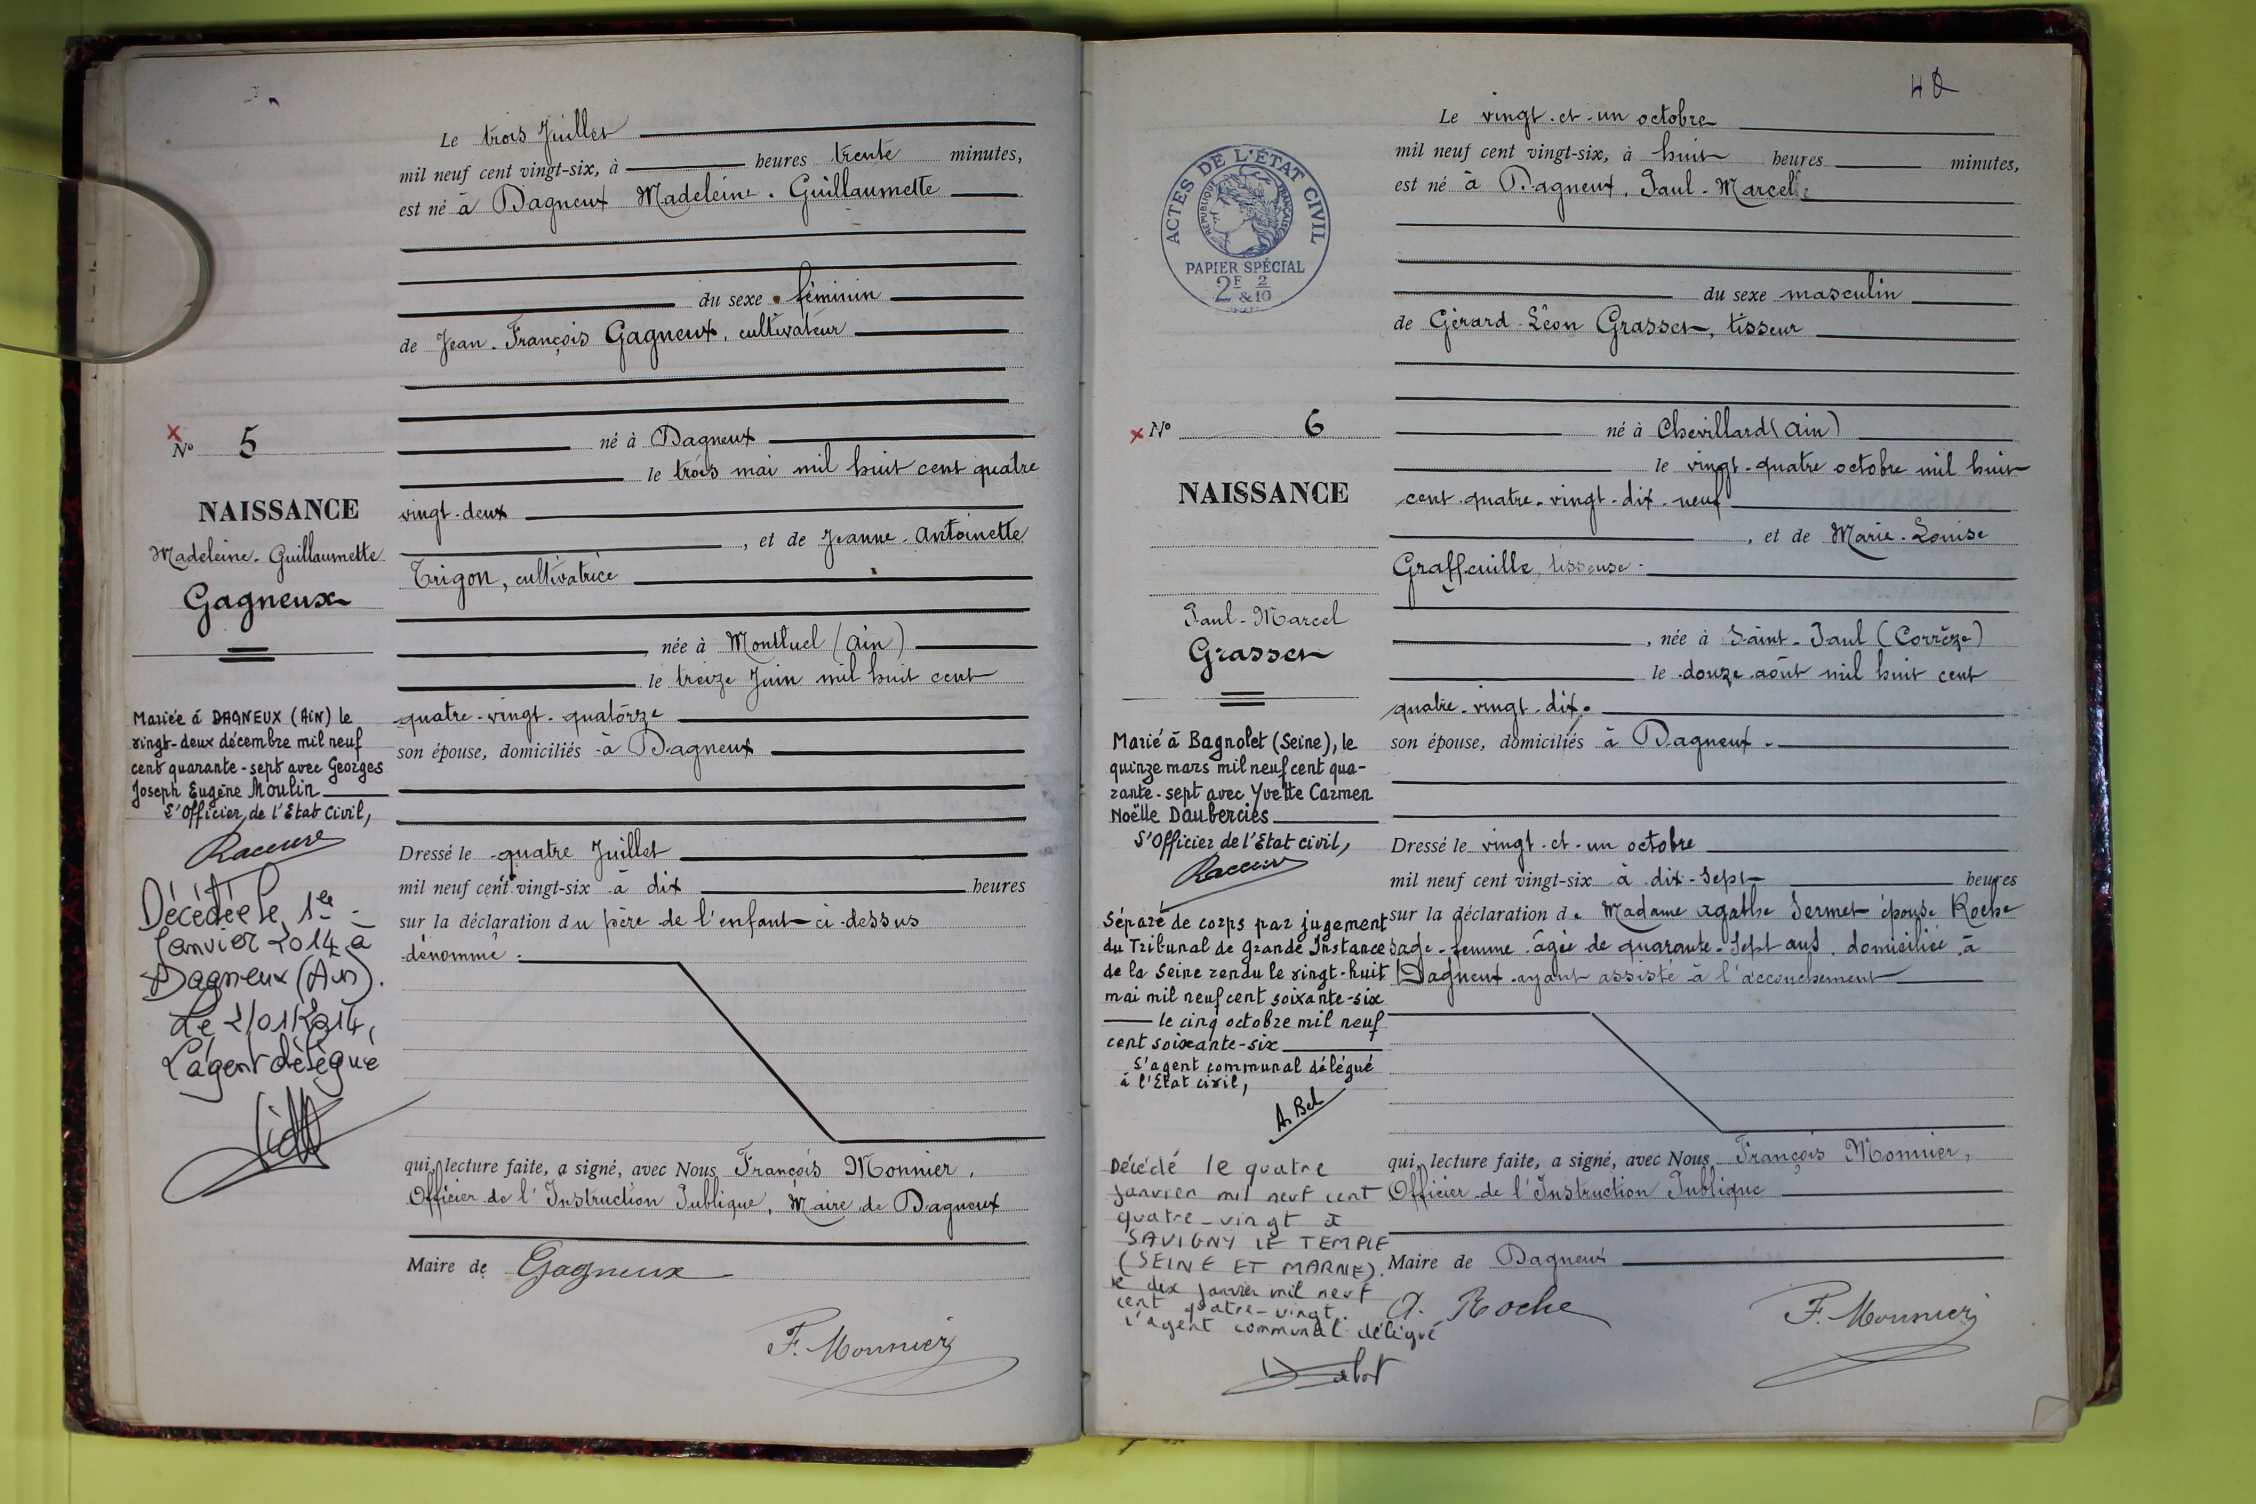 Le trois Juillet
mil neuf cent vingt-six, à heures trente minutes,
est né à Dagneux Madeleine. Guillaumette
du sexe féminin
de Jean. François Gagneux, cultivateur
né à Dagneux
le trois mai mil huit cent quatre
vingt-deux
, et de Jeanne. Antoinette
Trigon, cultivatrice
, née à Montluel (Ain)
le treize Juin mil huit cent
quatre-vingt-quatorze
son épouse, domiciliés à Dagneux
Dressé le quatre Juillet
mil neuf cent vingt-six à dix heures
sur la déclaration du père de l'enfant ci-dessus
dénommé.
qui, lecture faite, a signé, avec Nous François Monnier,
Officier de l'Instruction Publique, Maire de Dagneux
Maire de Gagneux
F. Monnier
N° 5
NAISSANCE
Madeleine. Guillaumette
Gagneux
Mariée à DAGNEUX (AiN) le
vingt-deux décembre mil neuf
cent quarante-sept avec Georges
Joseph Eugène Moulin
L'Officier de l'Etat Civil,
Décédée le 1er
Janvier 2014 à
Dagneux (Ain).
Le 2/01/2014,
L'agent délégué
Le vingt-et-un octobre
mil neuf cent vingt-six, à huit heures minutes,
est né à Dagneux. Paul-Marcel
du sexe masculin
de Gérard Léon Grasset, tisseur
né à Chevillard (Ain)
le vingt-quatre octobre mil huit
cent quatre-vingt-dix-neuf
, et de Marie-Louise
Graffeuille, tisseuse.
, née à Saint-Paul (Corrèze)
le douze août mil huit cent
quatre-vingt-dix.
son épouse, domiciliés à Dagneux.
Dressé le vingt-et-un octobre
mil neuf cent vingt-six à dix-sept heures
sur la déclaration de Madame Agathe Sermet épouse Roche
sage-femme âgée de quarante-sept ans, domiciliée à
Dagneux ayant assisté à l'accouchement
qui, lecture faite, a signé, avec Nous François Monnier,
Officier de l'Instruction Publique
Maire de Dagneux
A. Roche
F. Monnier
ACTES DE L'ÉTAT CIVIL
RÉPUBLIQUE FRANÇAISE
PAPIER SPÉCIAL
2F & 2/10
N° 6
NAISSANCE
Paul-Marcel
Grasset
Marié à Bagnolet (Seine), le
quinze mars mil neuf cent qua-
rante-sept avec Yvette Carmen
Noëlle Dauberciès
L'Officier de l'Etat civil,
Séparé de corps par jugement
du Tribunal de Grande Instance
de la Seine rendu le vingt-huit
mai mil neuf cent soixante-six
le cinq octobre mil neuf
cent soixante-six
L'agent communal délégué
à l'Etat civil,
A. Bel
Décédé le quatre
Janvier mil neuf cent
quatre-vingt à
SAVIGNY LE TEMPLE
(SEINE ET MARNE).
le dix Janvier mil neuf
cent quatre-vingt.
L'agent communal délégué